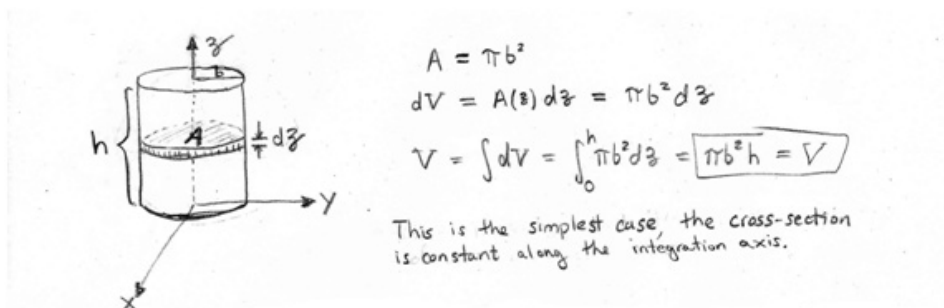 z
b
h
A
dz
y
x
A = πb²
dV = A(z) dz = πb² dz
V = ∫dV = ∫₀ʰ πb² dz = πb²h = V
This is the simplest case, the cross-section
is constant along the integration axis.